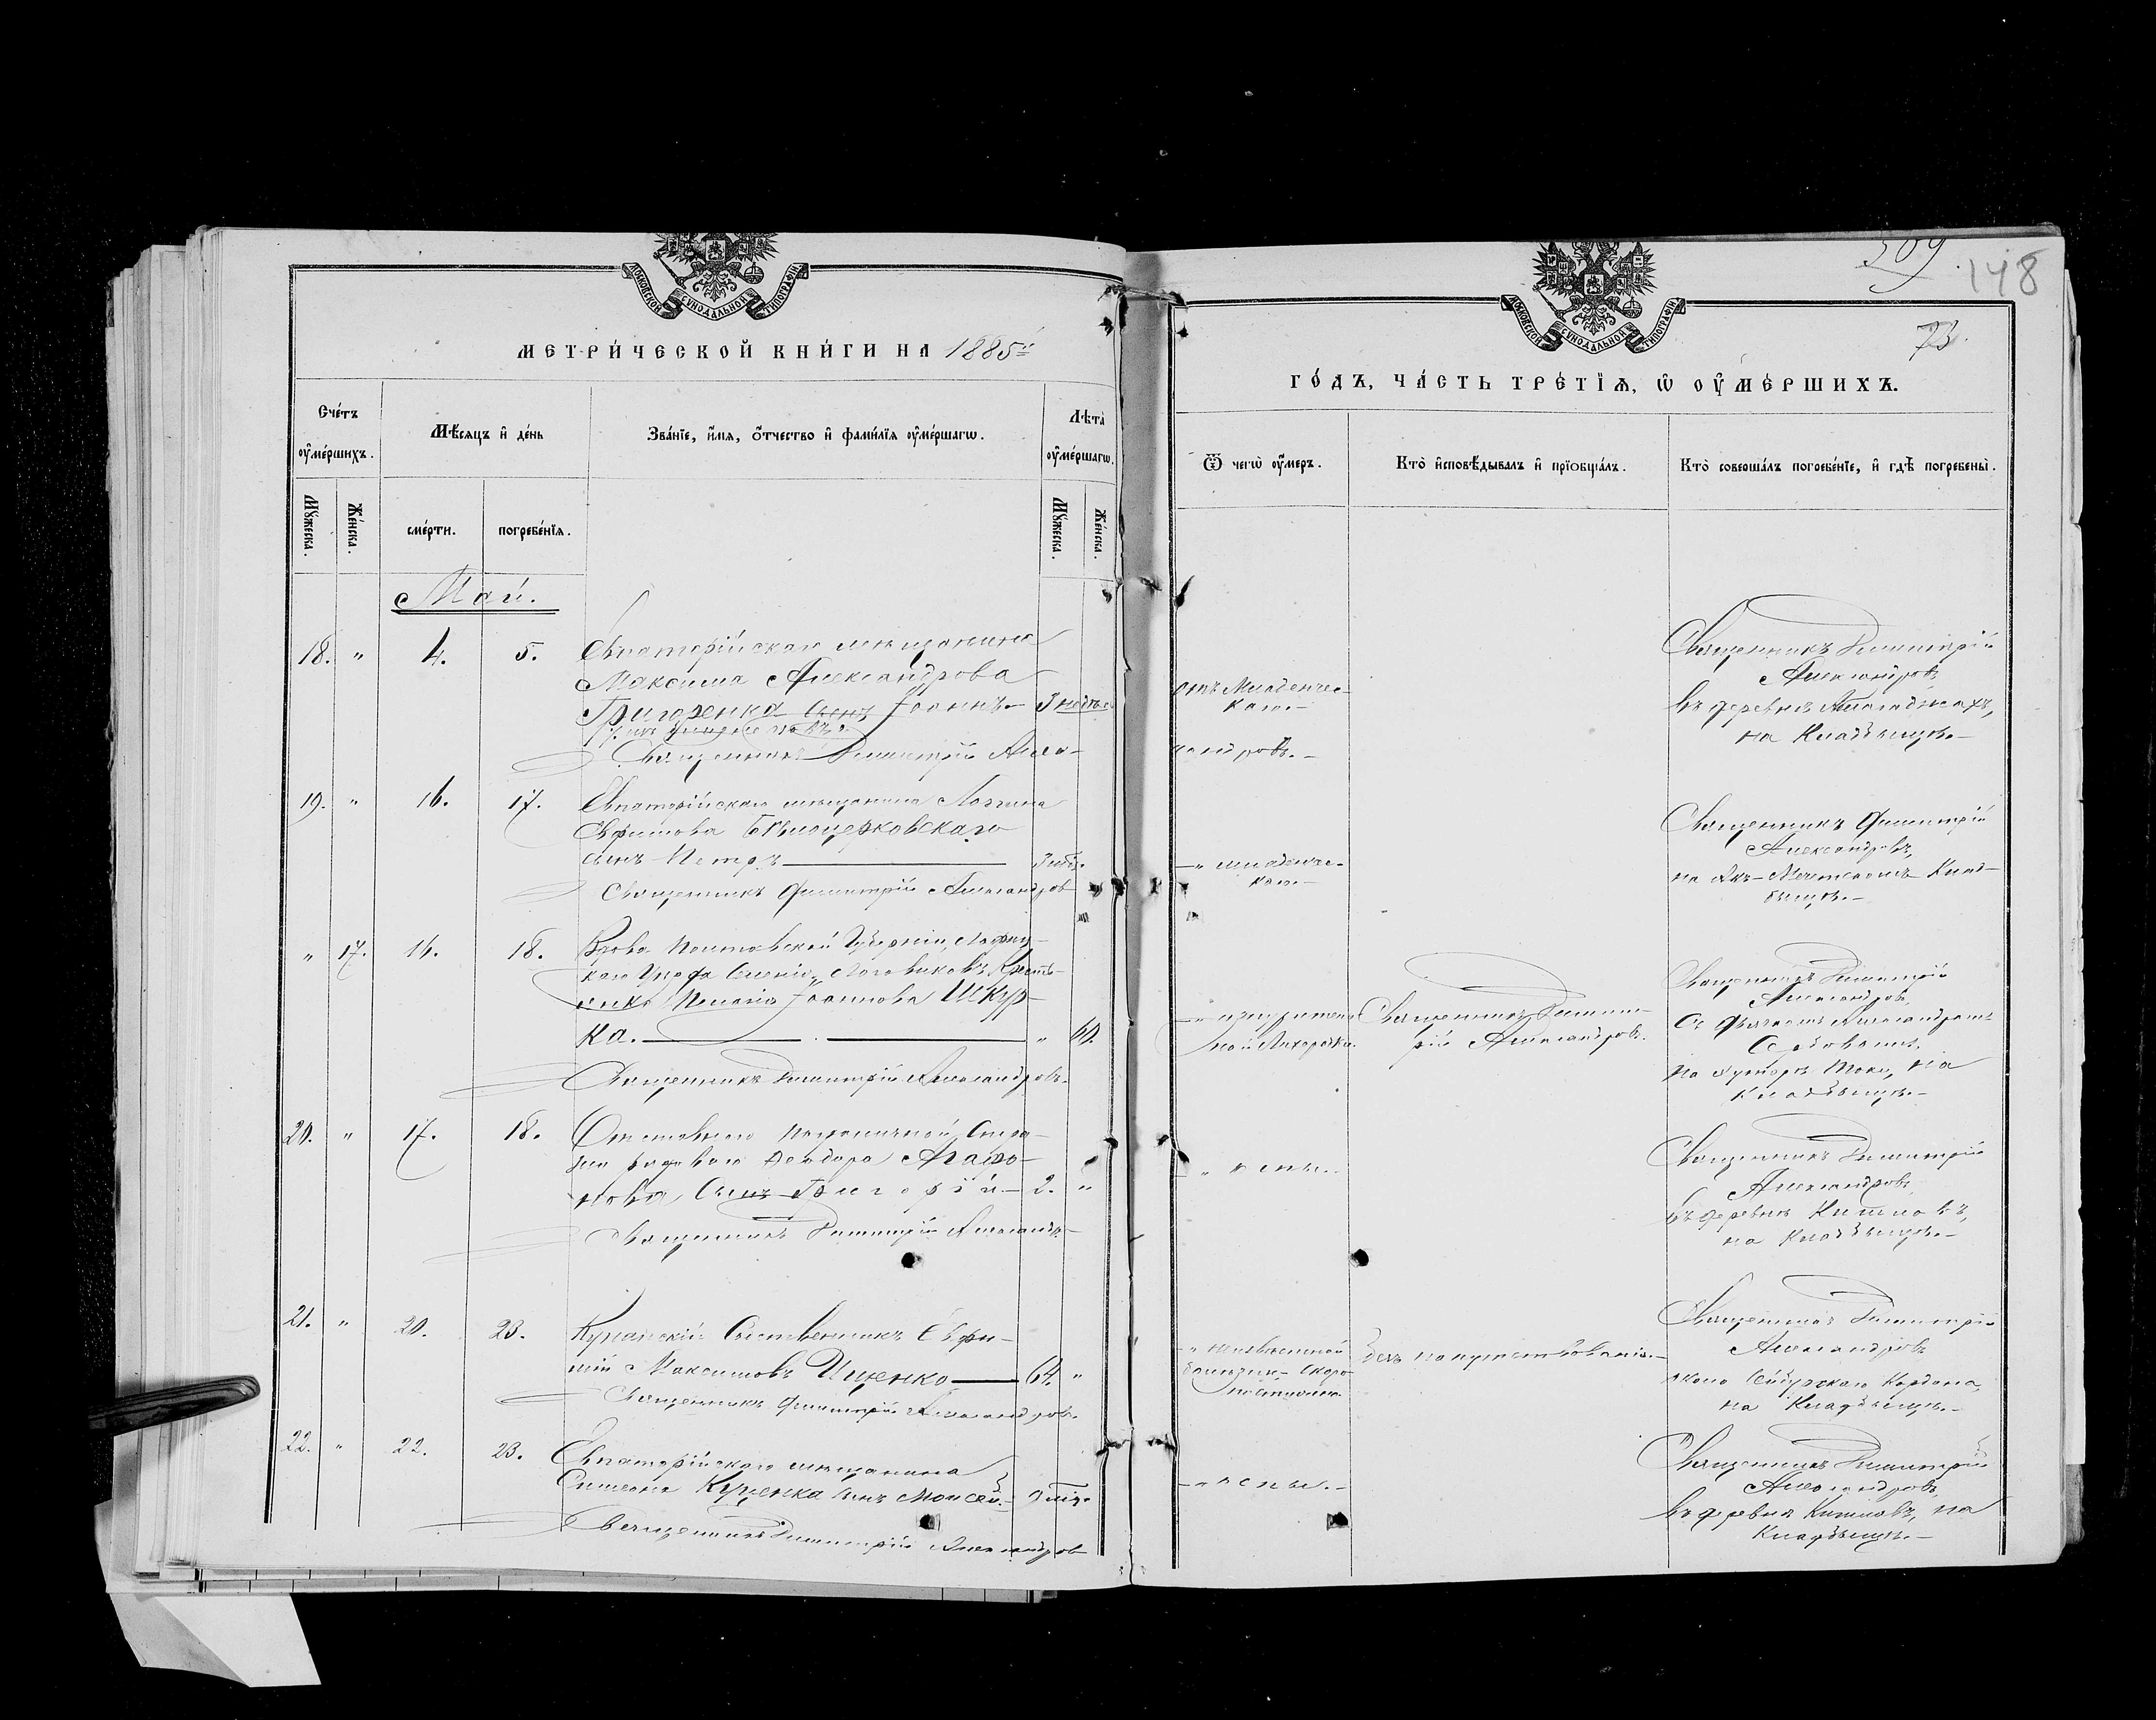 МОСКОВСКОЙ СУНОДАЛЬНОЙ ТИПОГРАФІИ
МЕТРИ́ЧЕСКОЙ КНИ́ГИ НА 1885й
Сче́тъ оумéршихъ.
Мѣ́сяцъ и де́нь
Зва́нїе, и́мя, о́тчество и фами́лїя оуме́ршагѡ.
Лѣта̀ оуме́ршагѡ.
Мꙋ́жеска.
Же́нска.
сме́рти.
погребе́нїя.
Мꙋ́жеска.
Же́нска.
Май.
18. " 4. 5. Евпаторійскаго мѣщанина
Максима Александрова
Григоренка сынъ Іоаннъ.—
Священникъ Димитрій Алек-
19. " 16. 17. Евпаторійскаго мѣщанина Логгина
Ефимова Бѣлоцерковскаго
сынъ Петръ
Священникъ Димитрій Александров
" 17. 16. 18. Вдова Полтавской Губерніи,
каго Уѣзда Крестъ-
Іоаннова Шкур-
ка. " 60.
Священникъ Димитрій Александровъ.
20. " 17. 18. Отставнаго пограничной Стра-
жи рядоваго Ѳеодора Агафо-
нова Сынъ Григорій.— 2. "
Священникъ Димитрій Александр.
21. " 20. 23. Собственникъ Ефи-
мій Максимовъ Ищенко 64. "
Священникъ Димитрій Александровъ.
22. " 22. 23. Евпаторійскаго мѣщанина
Симеона Куценка сынъ Моисей.—
Священникъ Димитрій Александров
509. 148
73.
МОСКОВСКОЙ СУНОДАЛЬНОЙ ТИПОГРАФІИ
ГО́ДЪ, ЧА́СТЬ ТРЕ́ТЇЯ, Ѡ ОУМЕ́РШИХЪ.
Ѿ чегѡ̀ оу́меръ.
Кто̀ и́сповѣ́дывалъ и прїобща́лъ.
Кто̀ соверша́лъ погребе́нїе, и гдѣ̀ погребены̀.
отъ Младенчес-
каго.—
сандровъ.—
Священникъ Димитрій
Александровъ
въ деревнѣ
на Кладбищѣ.—
—" младенчес-
каго.—
Священникъ Димитрій
Александровъ,
на Акъ-Мечетскомъ Клад-
бищѣ.—
—" изнурительной Лихорадки.
Священникъ Димит-
рій Александровъ.
Священникъ Димитрій
Александровъ,
съ Дьячкомъ Александромъ
на хуторѣ Токи, на
Кладбищѣ.—
" оспы.—
Священникъ Димитрій
Александровъ
въ деревнѣ
на Кладбищѣ.—
—" неизвѣстной
болѣзни - скоро
безъ напутствованія.—
Священникъ Димитрій
Александровъ
около Кордона,
на Кладбищѣ.—
—" оспы.—
Священникъ Димитрій
Александровъ,
въ деревнѣ на
Кладбищѣ.—